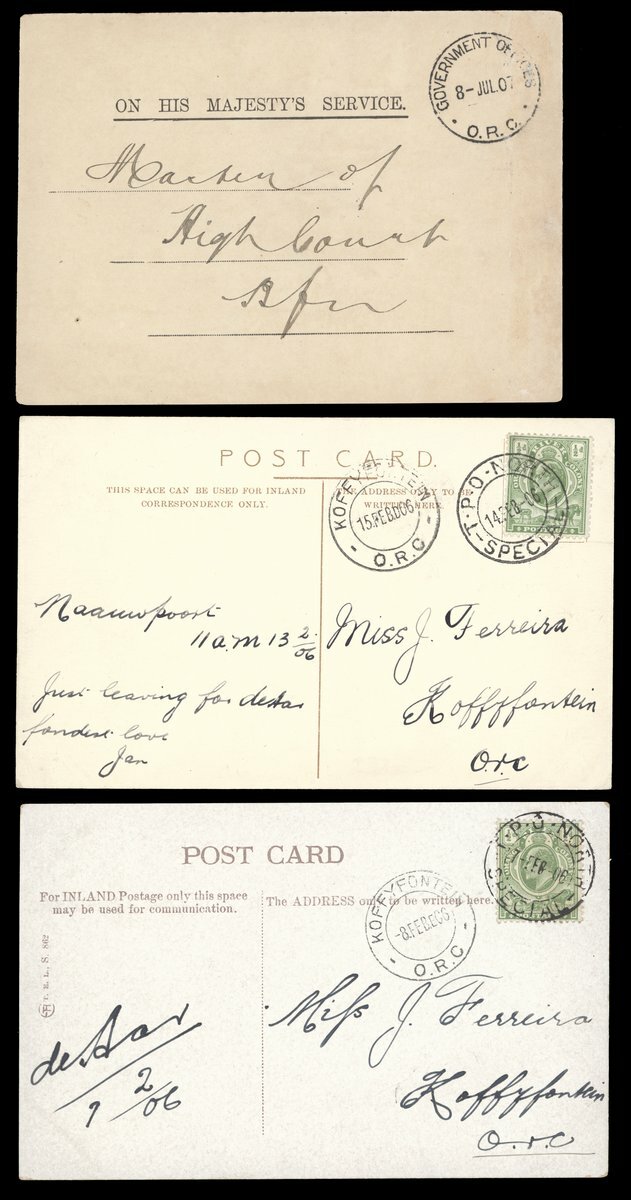 GOVERNMENT OFFICES
8-JUL.07
O.R.C.
ON HIS MAJESTY'S SERVICE.
Master of
High Court
Bfn
POST CARD.
THIS SPACE CAN BE USED FOR INLAND
CORRESPONDENCE ONLY.
THE ADDRESS ONLY TO BE
WRITTEN HERE.
KOFFYFONTEIN
15.FEB.06
O.R.C
T.P.O-NORTH
14.FEB.06
-SPECIAL
½d ½d
Naauwpoort
11 a.m 13 2/06
Just leaving for deAar
fondest love
Jan
Miss J. Ferreira
Koffyfontein
O.r.c
POST CARD
For INLAND Postage only this space
may be used for communication.
The ADDRESS only to be written here.
KOFFYFONTEIN
8.FEB.06
O.R.C
T.P.O-NORTH
7-FEB-06
SPECIAL
T. E. L., S. 862
deAar
7 2/06
Miss J. Ferreira
Koffyfontein
O.r.c